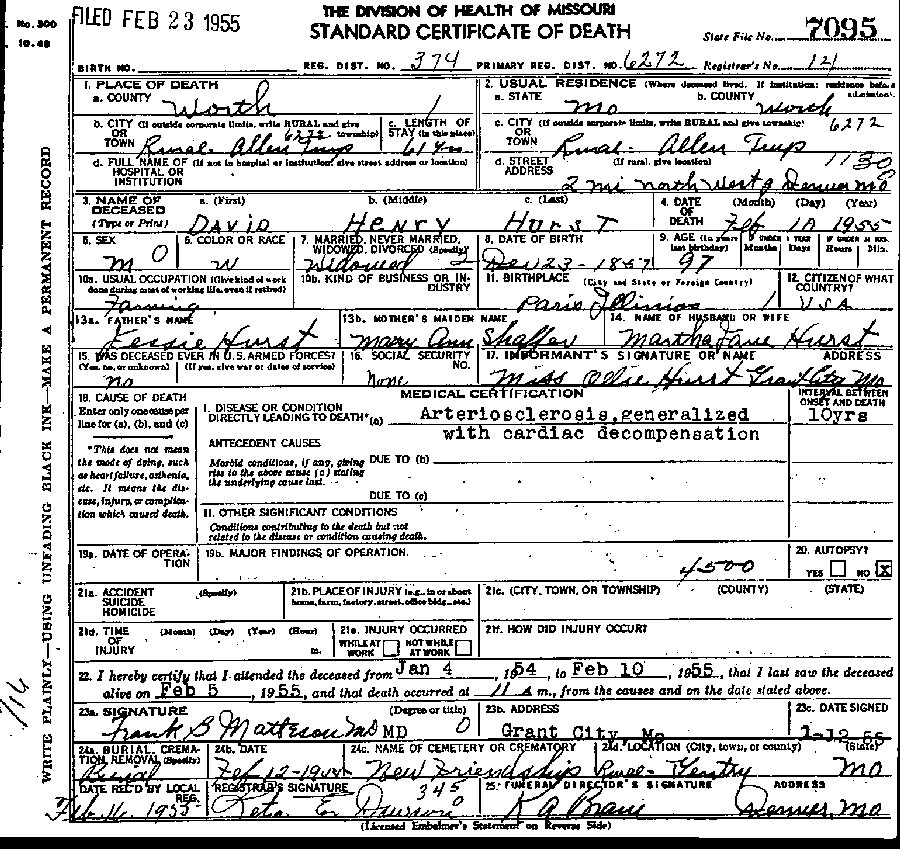 No. 300
10.48
FILED FEB 23 1955
THE DIVISION OF HEALTH OF MISSOURI
STANDARD CERTIFICATE OF DEATH
State File No. 7095
BIRTH NO. REG. DIST. NO. 374 PRIMARY REG. DIST. NO. 6272 Registrar's No. 121
1. PLACE OF DEATH
a. COUNTY Worth
2. USUAL RESIDENCE (Where deceased lived. If institution: residence before admission).
a. STATE Mo b. COUNTY Worth
b. CITY (If outside corporate limits, write RURAL and give township) OR TOWN Rural- Allen Twp 6272
c. LENGTH OF STAY (in this place) 61 Yrs
c. CITY (If outside corporate limits, write RURAL and give township) OR TOWN Rural- Allen Twp 6272
d. FULL NAME OF (If not in hospital or institution, give street address or location) HOSPITAL OR INSTITUTION
d. STREET ADDRESS (If rural, give location) 1130
2 mi north west of Denver Mo
3. NAME OF DECEASED (Type or Print)
a. (First) b. (Middle) c. (Last)
DAVID HENRY HURST
4. DATE OF DEATH (Month) (Day) (Year)
Feb 10 1955
5. SEX M 0
6. COLOR OR RACE W
7. MARRIED, NEVER MARRIED, WIDOWED, DIVORCED (Specify) Widowed 2
8. DATE OF BIRTH Dec 23-1857
9. AGE (In years last birthday) 97
IF UNDER 1 YEAR Months Days
IF UNDER 24 HRS. Hours Min.
10a. USUAL OCCUPATION (Give kind of work done during most of working life, even if retired) Farming
10b. KIND OF BUSINESS OR INDUSTRY
11. BIRTHPLACE (City and State or Foreign Country) Paris Illinios 1
12. CITIZEN OF WHAT COUNTRY? USA
13a. FATHER'S NAME Hurst
13b. MOTHER'S MAIDEN NAME Mary Ann Shaffer
14. NAME OF HUSBAND OR WIFE Martha Jane Hurst
15. WAS DECEASED EVER IN U.S. ARMED FORCES? (Yes, no, or unknown) (If yes, give war or dates of service) no
16. SOCIAL SECURITY NO. None
17. INFORMANT'S SIGNATURE OR NAME ADDRESS
Miss Ollie Hurst Grant City Mo
18. CAUSE OF DEATH
Enter only one cause per line for (a), (b), and (c)
*This does not mean the mode of dying, such as heart failure, asthenia, etc. It means the disease, injury, or complication which caused death.
MEDICAL CERTIFICATION
INTERVAL BETWEEN ONSET AND DEATH
I. DISEASE OR CONDITION DIRECTLY LEADING TO DEATH* (a) Arteriosclerosis, generalized 10yrs
with cardiac decompensation
ANTECEDENT CAUSES
Morbid conditions, if any, giving rise to the above cause (a) stating the underlying cause last.
DUE TO (b)
DUE TO (c)
II. OTHER SIGNIFICANT CONDITIONS
Conditions contributing to the death but not related to the disease or condition causing death.
19a. DATE OF OPERATION
19b. MAJOR FINDINGS OF OPERATION
4500
20. AUTOPSY?
YES NO X
21a. ACCIDENT SUICIDE HOMICIDE (Specify)
21b. PLACE OF INJURY (e.g., in or about home, farm, factory, street, office bldg., etc.)
21c. (CITY, TOWN, OR TOWNSHIP) (COUNTY) (STATE)
21d. TIME OF INJURY (Month) (Day) (Year) (Hour) m.
21e. INJURY OCCURRED WHILE AT WORK NOT WHILE AT WORK
21f. HOW DID INJURY OCCUR?
22. I hereby certify that I attended the deceased from Jan 4, 1954, to Feb 10, 1955, that I last saw the deceased
alive on Feb 5, 1955, and that death occurred at 11 a m., from the causes and on the date stated above.
23a. SIGNATURE (Degree or title)
Frank B Matteson MD MD 0
23b. ADDRESS Grant City, Mo
23c. DATE SIGNED 1-12-55
24a. BURIAL, CREMATION, REMOVAL (Specify) Burial
24b. DATE Feb 12-1955
24c. NAME OF CEMETERY OR CREMATORY New Friendship
24d. LOCATION (City, town, or county) (State) Rural- Gentry MO
DATE REC'D BY LOCAL REG. Feb. 16. 1955
REGISTRAR'S SIGNATURE 345
25. FUNERAL DIRECTOR'S SIGNATURE ADDRESS
Denver, Mo
(Licensed Embalmer's Statement on Reverse Side)
WRITE PLAINLY—USING UNFADING BLACK INK—MAKE A PERMANENT RECORD